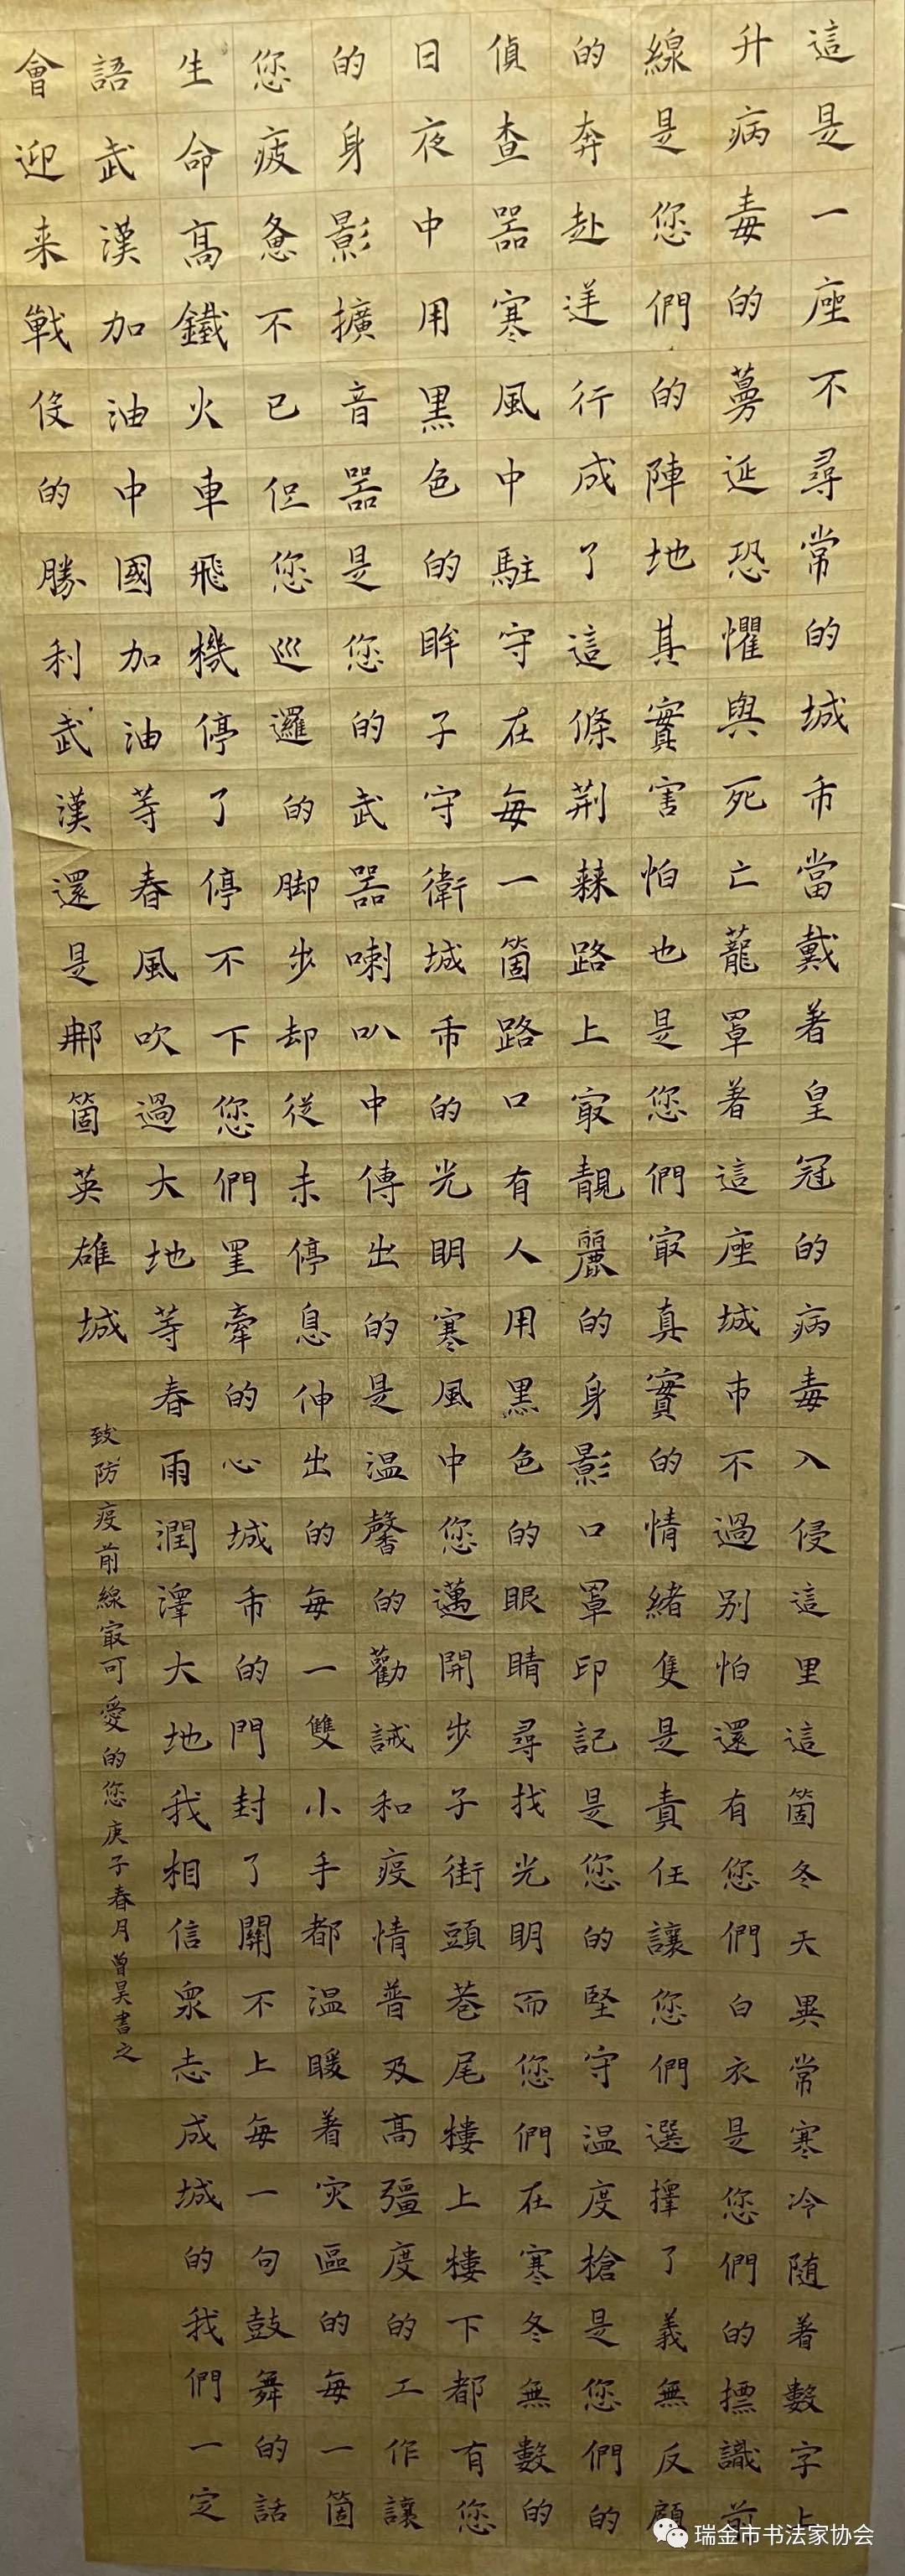 這是一座不尋常的城市當戴着皇冠的病毒入侵這里這箇冬天異常寒冷随着數字上
升病毒的蔓延恐懼與死亡蘢罩着這座城市不過别怕還有您們白衣是您們的標識前
線是您們的陣地其實害怕也是您們寂真實的情緒隻是責任讓您們選擇了義無反顧
的奔赴逆行成了這條荆棘路上寂靚麗的身影口罩印記是您的堅守温度槍是您們的
偵查器寒風中駐守在每一箇路口有人用黑色的眼睛尋找光明而您們在寒冬無數的
日夜中用黑色的眸子守衛城市的光明寒風中您邁開步子街頭巷尾樓上樓下都有您
的身影擴音器是您的武器喇叭中傳出的是温馨的勸誡和疫情普及高彊度的工作讓
您疲惫不已但您巡邏的脚步却從未停息伸出的每一雙小手都温暖着灾區的每一箇
生命高鐵火車飛機停了停不下您們罣牽的心城市的門封了關不上每一句鼓舞的話
語武漢加油中國加油等春風吹過大地等春雨潤澤大地我相信衆志成城的我們一定
會迎来戰役的勝利武漢還是那箇英雄城
致防疫前線寂可愛的您庚子春月曾昊書之
瑞金市书法家协会